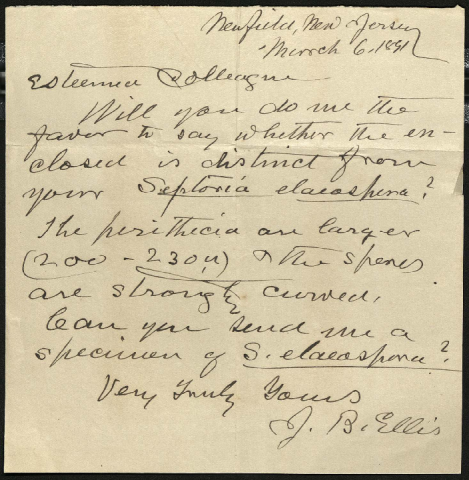 Newfield, New Jersey
March 6, 1891
Esteemed Colleague
Will you do me the
favor to say whether the en-
closed is distinct from
your Septoria elaeospora?
The perithecia are larger
(200-230µ) & the spores
are strongly curved.
Can you send me a
specimen of S. elaeospora?
Very Truly Yours
J. B. Ellis